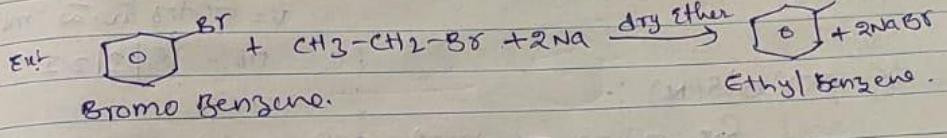 Br
Ex:- + CH3-CH2-Br + 2Na dry Ether + 2NaBr
Bromo Benzene. Ethyl Benzene.